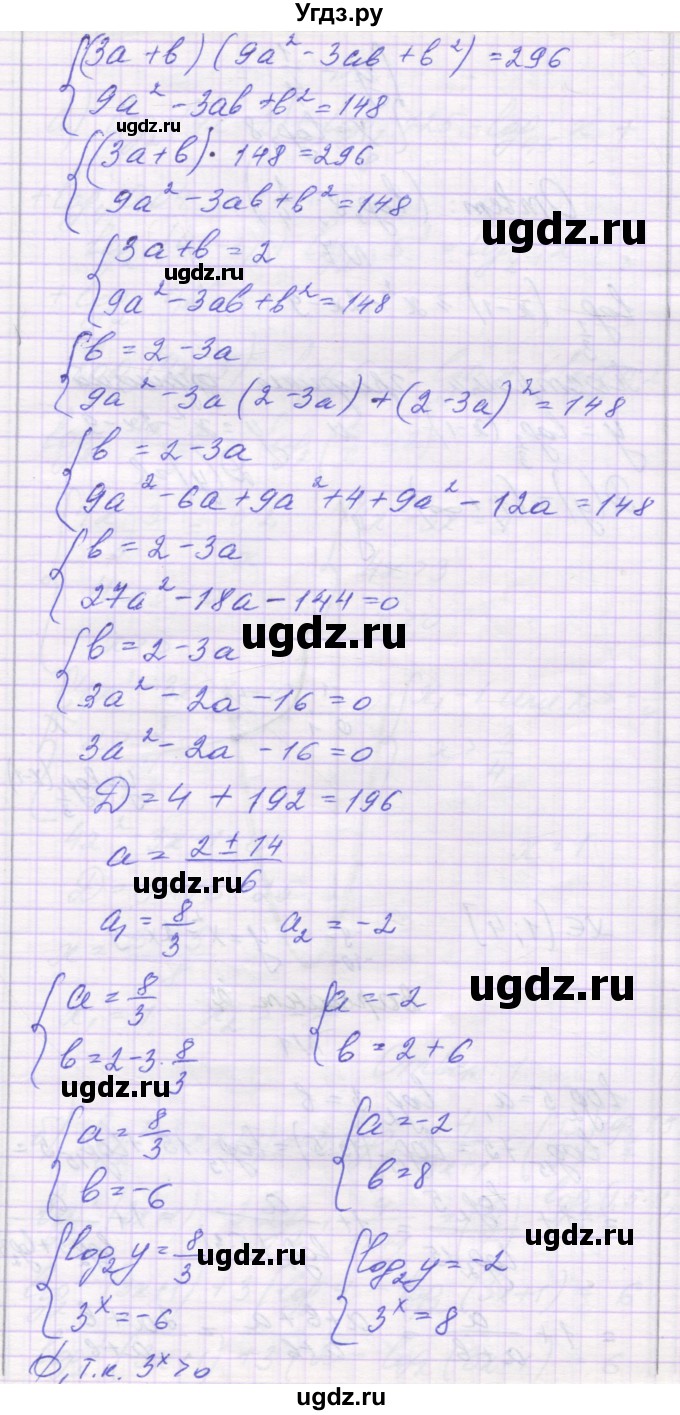 Угдз.ру
{(3a + b) (9a² - 3ab + b²) = 296
{9a² - 3ab + b² = 148
ugdz.ru
{(3a + b) · 148 = 296
{9a² - 3ab + b² = 148
ugdz.ru
{3a + b = 2
ugdz.ru
{9a² - 3ab + b² = 148
{b = 2 - 3a
{9a² - 3a (2 - 3a) + (2 - 3a)² = 148
{b = 2 - 3a
{9a² - 6a + 9a² + 4 + 9a² - 12a = 148
{b = 2 - 3a
{27a² - 18a - 144 = 0
ugdz.ru
{b = 2 - 3a
{3a² - 2a - 16 = 0
3a² - 2a - 16 = 0
D = 4 + 192 = 196
a = (2 ± 14)/6
ugdz.ru
a₁ = 8/3 a₂ = -2
ugdz.ru
{a = 8/3 {a = -2
{b = 2 - 3 · 8/3 {b = 2 + 6
ugdz.ru
{a = 8/3 {a = -2
{b = -6 {b = 8
ugdz.ru ugdz.ru
{log₂y = 8/3 {log₂y = -2
{3ˣ = -6 {3ˣ = 8
∅, т.к. 3ˣ > 0
ugdz.ru